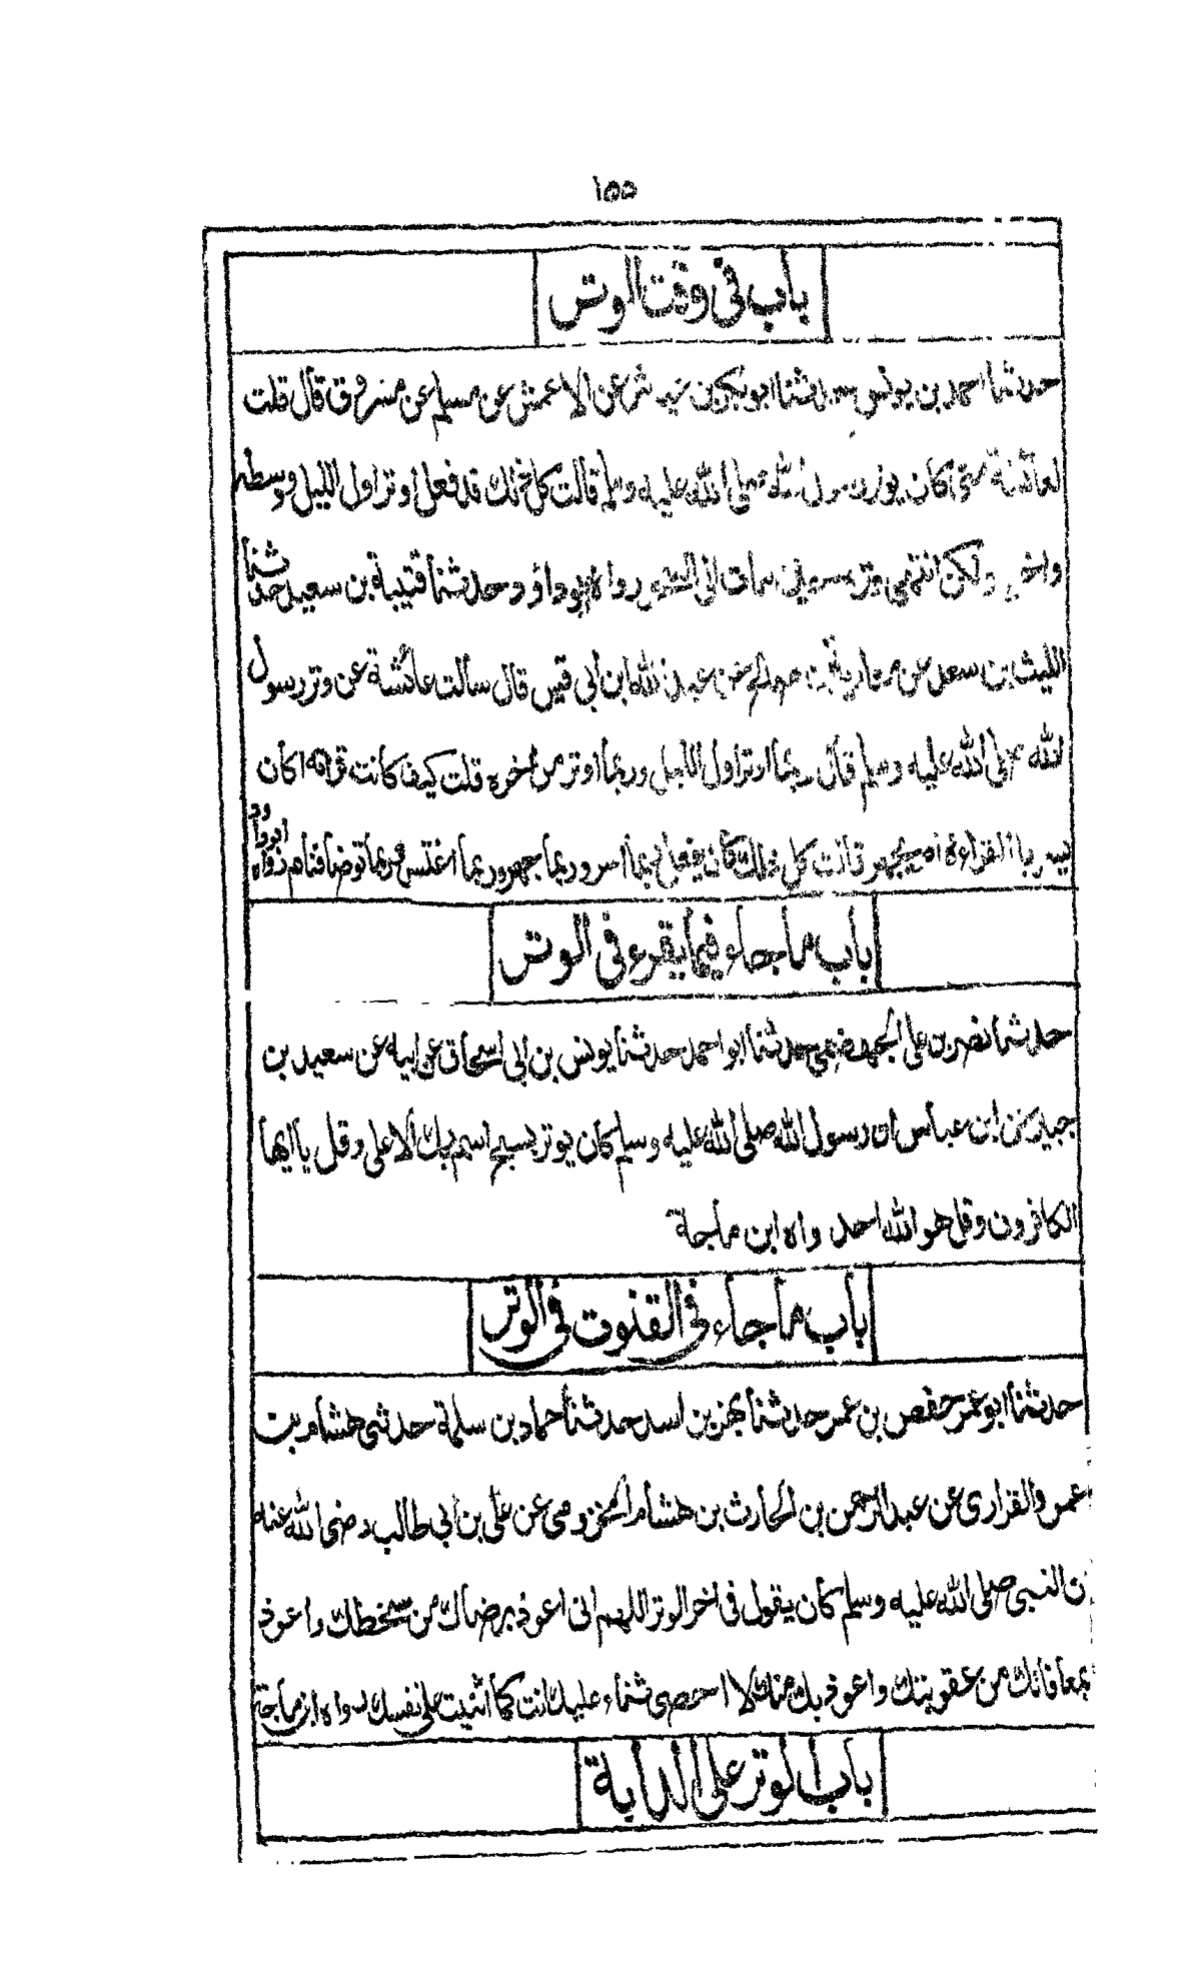 ١٥٥
باب في وقت الوتر
حدثنا احمد بن يونس حدثنا ابوبكر بن عن الاعمش عن مسلم عن مسروق قال قلت
لعائشة متى كان يوتر رسول الله صلى الله عليه وسلم قالت كل ذلك قد فعل اوتر اول الليل ووسطه
واخره ولكن انتهى وتره حين مات الى السحر رواه ابوداؤد حدثنا قتيبة بن سعيد حدثنا
الليث بن سعد عن معاوية بن صالح عن عبد الله ابن أبي قيس قال سألت عائشة عن وتر رسول
الله صلى الله عليه وسلم قالت ربما اوتر اول الليل وربما اوتر من اخره قلت كيف كانت قراءته اكان
يسر بالقراءة ام يجهر قالت كل ذلك كان يفعل ربما اسر وربما جهر وربما اغتسل وربما توضأ فنام رواه ابوداود
باب ما جاء فيما يقرء في الوتر
حدثنا نصر بن على الجهضمي حدثنا ابو احمد حدثنا يونس بن ابى اسحاق عن ابيه عن سعيد بن
جبير عن ابن عباس ان رسول الله صلى الله عليه وسلم كان يوتر بسبح اسم ربك الاعلى وقل يا ايها
الكافرون وقل هو الله احد رواه ابن ماجة
باب ما جاء في القنوت في الوتر
حدثنا ابو عمر حفص بن عمر حدثنا بهز بن اسد حدثنا حماد بن سلمة حدثنى هشام بن
عمرو الفزارى عن عبد الرحمن بن الحارث بن هشام المخزومى عن على بن أبى طالب رضى الله عنه
ن النبى صلى الله عليه وسلم كان يقول فى اخر الوتر اللهم انى اعوذ برضاك من سخطك واعوذ
بمعافاتك من عقوبتك واعوذ بك منك لا احصى ثناء عليك انت كما اثنيت على نفسك رواه ابن ماجة
باب الوتر على الدابة